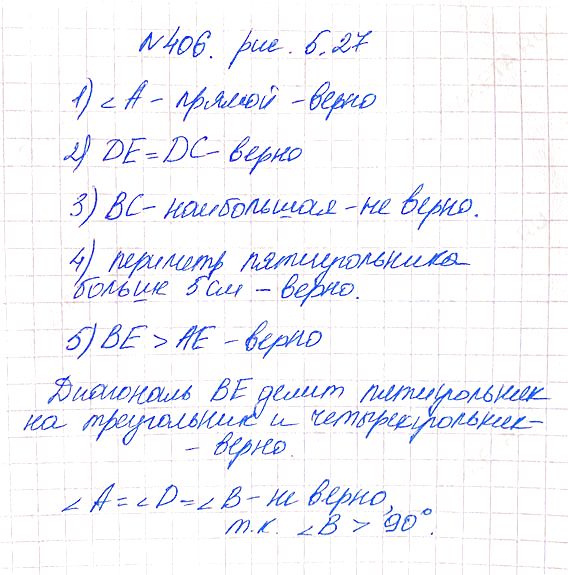 №406. рис. 5.27
1) ∠A - прямой - верно
2) DE = DC - верно
3) BC - наибольшая - не верно.
4) периметр пятиугольника
больше 5 см - верно.
5) BE > AE - верно
Диагональ BE делит пятиугольник
на треугольник и четырехугольник -
- верно.
∠A = ∠D = ∠B - не верно,
т.к. ∠B > 90°.